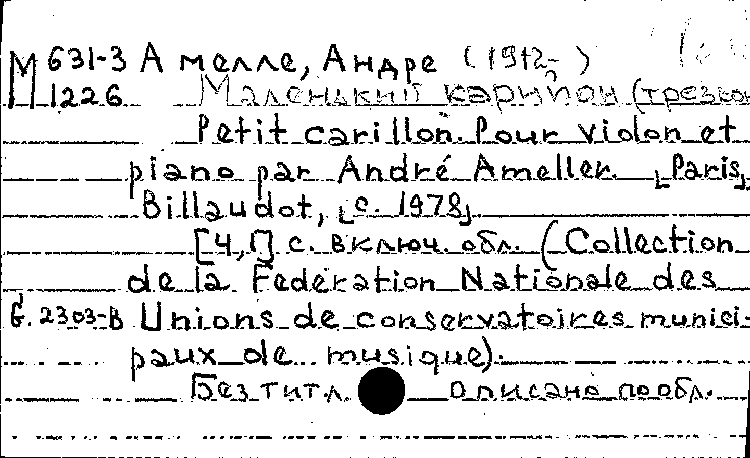 М 631-3 Амелле, Андре (1912- )
1226 Маленький карийон (трезвон
Petit carillon. Pour violon et
piano par André Ameller. [Paris,]
Billaudot, [c. 1978]
[4,1] с. включ. обл. (Collection
de la Federation Nationale des
G. 2303-B Unions de conservatoires munici-
paux de musique).
Без титл. Описано по обл.